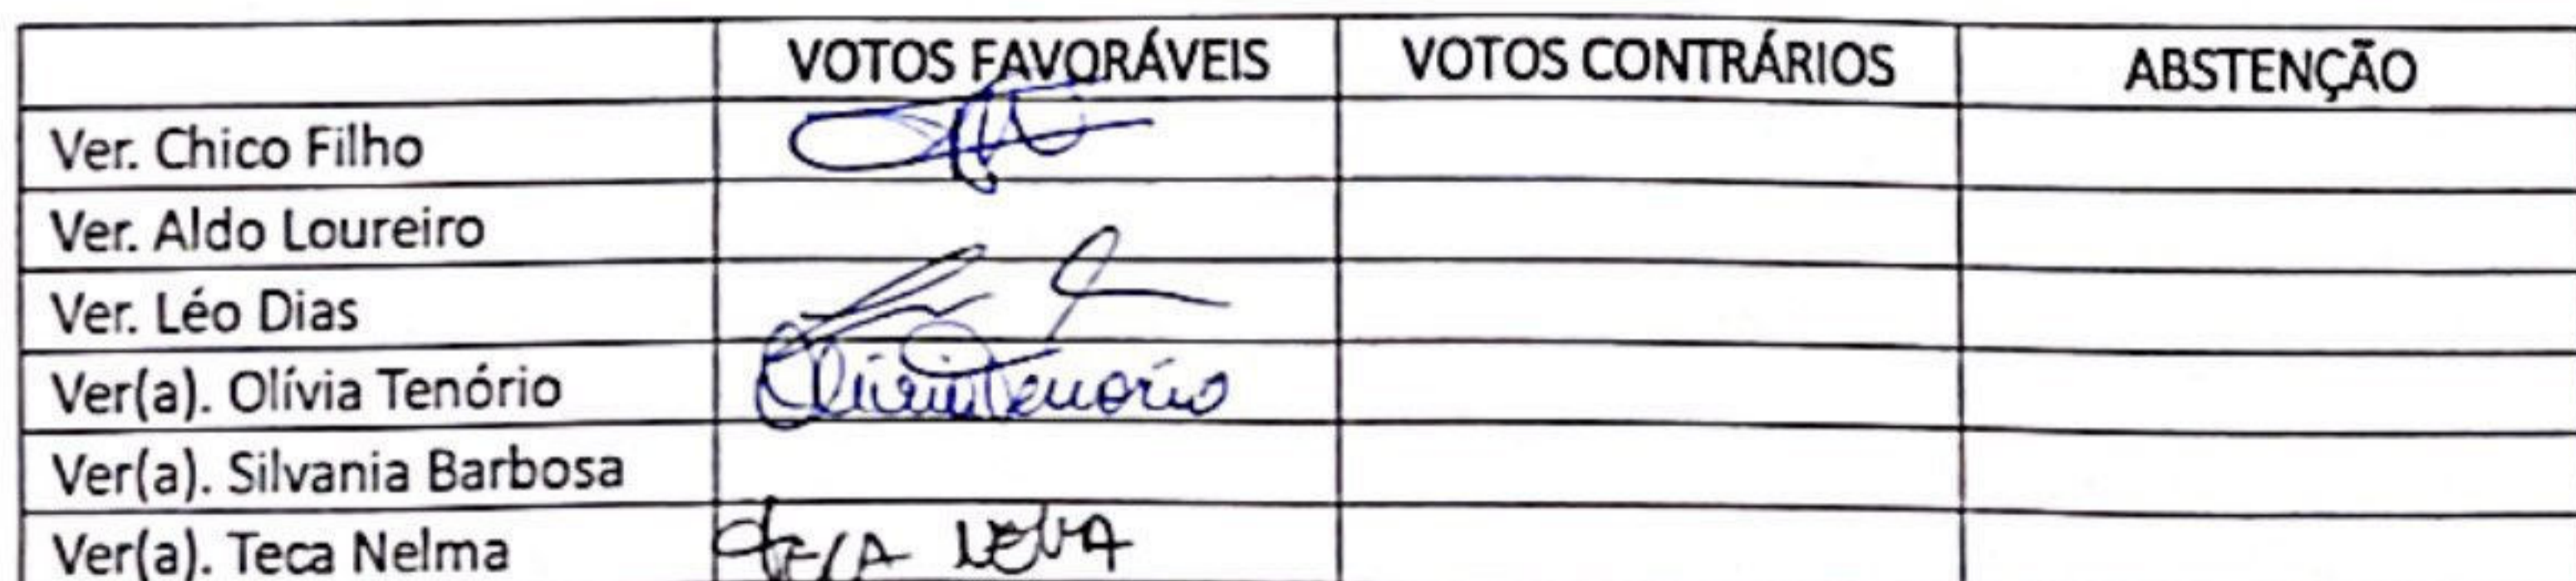 VOTOS FAVORÁVEIS VOTOS CONTRÁRIOS ABSTENÇÃO
Ver. Chico Filho
Ver. Aldo Loureiro
Ver. Léo Dias
Ver(a). Olívia Tenório Olívia Tenório
Ver(a). Silvania Barbosa
Ver(a). Teca Nelma TECA NELMA